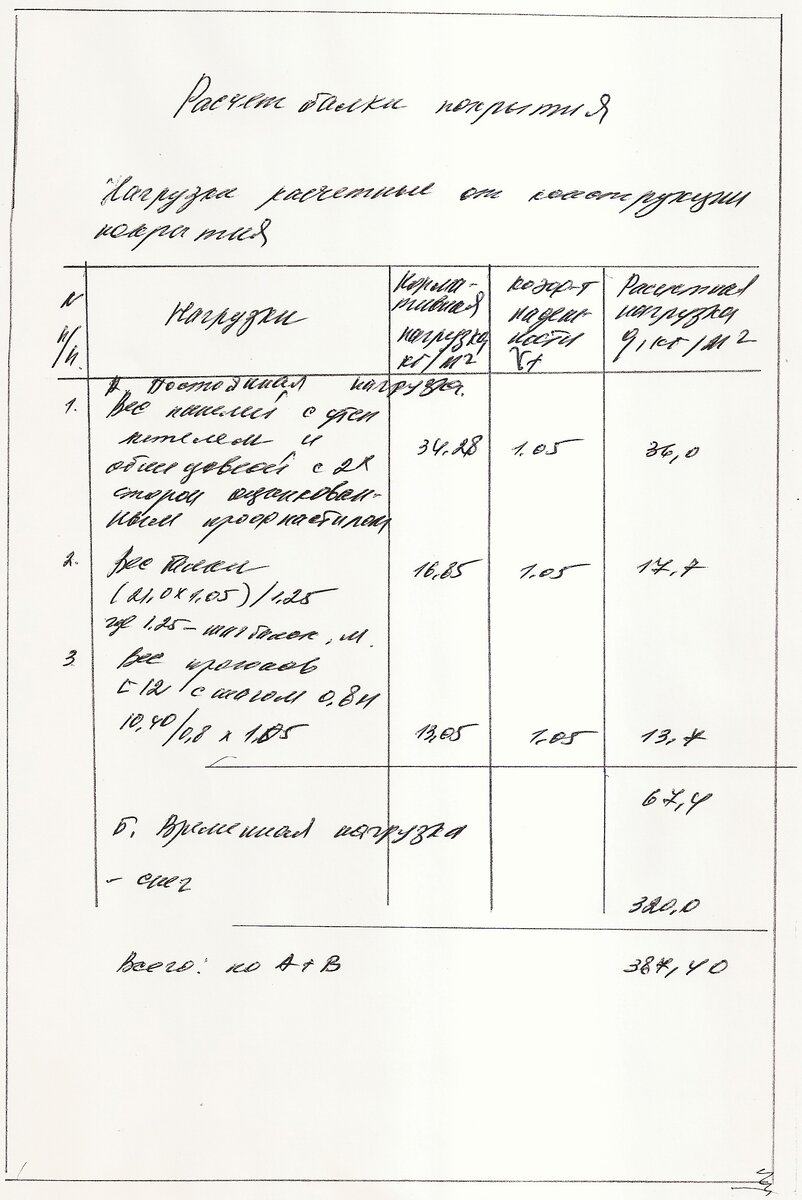 Расчет балки покрытия
Нагрузка расчетные от конструкции
покрытия
N
п/п.
Нагрузки
Норма-
тивная
нагрузка
кг/м²
коэф-т
надеж-
ности
γf
Расчетная
нагрузка
q, кг/м²
А. Постоянная нагрузка.
1.
Вес панелей с утеп
лителем и
облицовкой с 2х
сторон оцинкован-
ным профнастилом
34.28 1.05 36,0
2.
Вес балки
(21,0 x 1,05)/1.25
где 1.25 - шаг балок, м.
16,85 1.05 17,7
3.
Вес прогонов
[12 с шагом 0,8м
10,40/0,8 x 1,05
13,05 1.05 13,7
67,4
Б. Временная нагрузка
- снег
320,0
Всего: по А+В 387,40